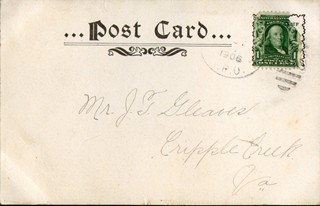 ...Post Card...
1906
R.P.O.
Mr. J. T. Gleaves
Cripple Creek
Va